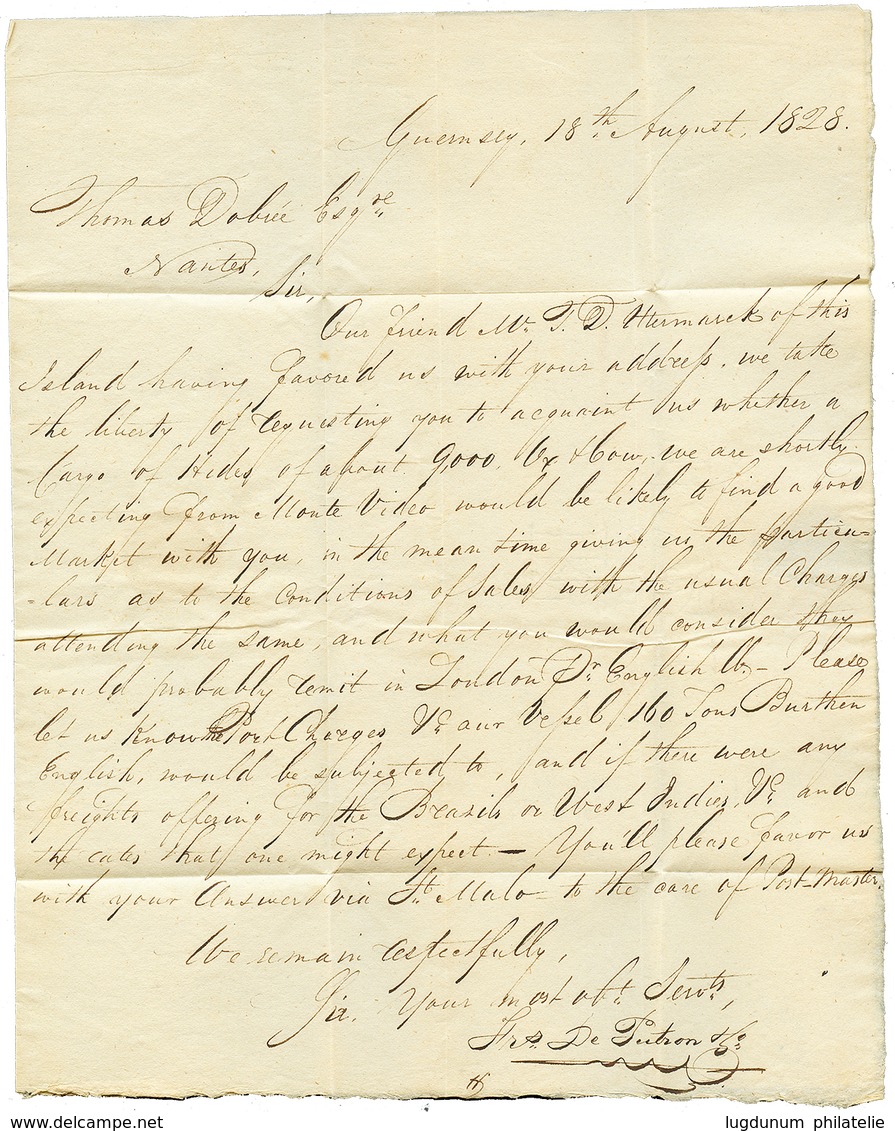 Guernsey, 18th August, 1828.
Thomas Dobrée Esqre
Nantes,
Sir,
Our friend Mr. T. D. Utermarck of this
Island having favored us with your address, we take
the liberty of requesting you to acquaint us whether a
Cargo of Hides of about 9000, Ox & Cow, we are shortly
expecting from Monte Video would be likely to find a good
Market with you, in the mean time giving us the particu-
-lars as to the Conditions of Sales with the usual Charges
attending the same, and what you would consider they
would probably remit in London Pr. English lb. - Please
let us know the Port Charges Vc. our Vessel 160 Tons Burthen
English, would be subjected to, and if there were any
freights offering for the Brazils or West Indies, Vc. and
the rates that one might expect. — You'll please favor us
with your Answer via St. Malo - to the care of Post-Master.
We remain respectfully,
Sir, Your most obt. Servts,
Frs. De Putron & Co.
www.delcampe.net
lugdunum philatelie